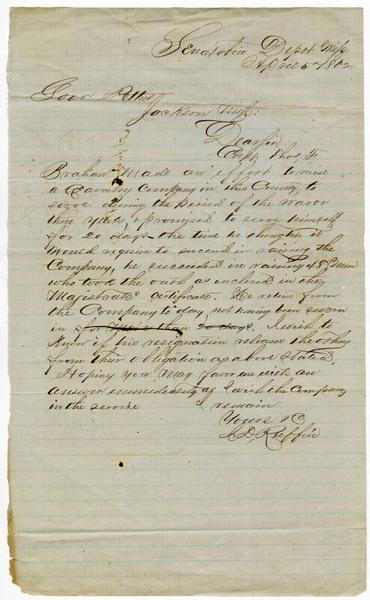 Senatobia Depot Miss
April 5th 1862
Gov Pettus
Jackson Miss:
Dear Sir
Capt Thos F
Brahan Made an effort to raise
a Cavalry Company in this County, to
serve during the period of the war or
three years & promised to serve himself
for 20 days the time he thought it
would require to succeed in raising the
Company, he succeeded in raising 48 men
who took the oath as inclosed in the
Magistrates Certificate. He retires from
the Company to day, not having been sworn
in for more than 20 days. I wish to
know if his resignation release the others
from their obligation as above stated,
Hoping you May favor us with an
answer immediately as I wish the Company
in the service I remain
Yours &c
Ruffin